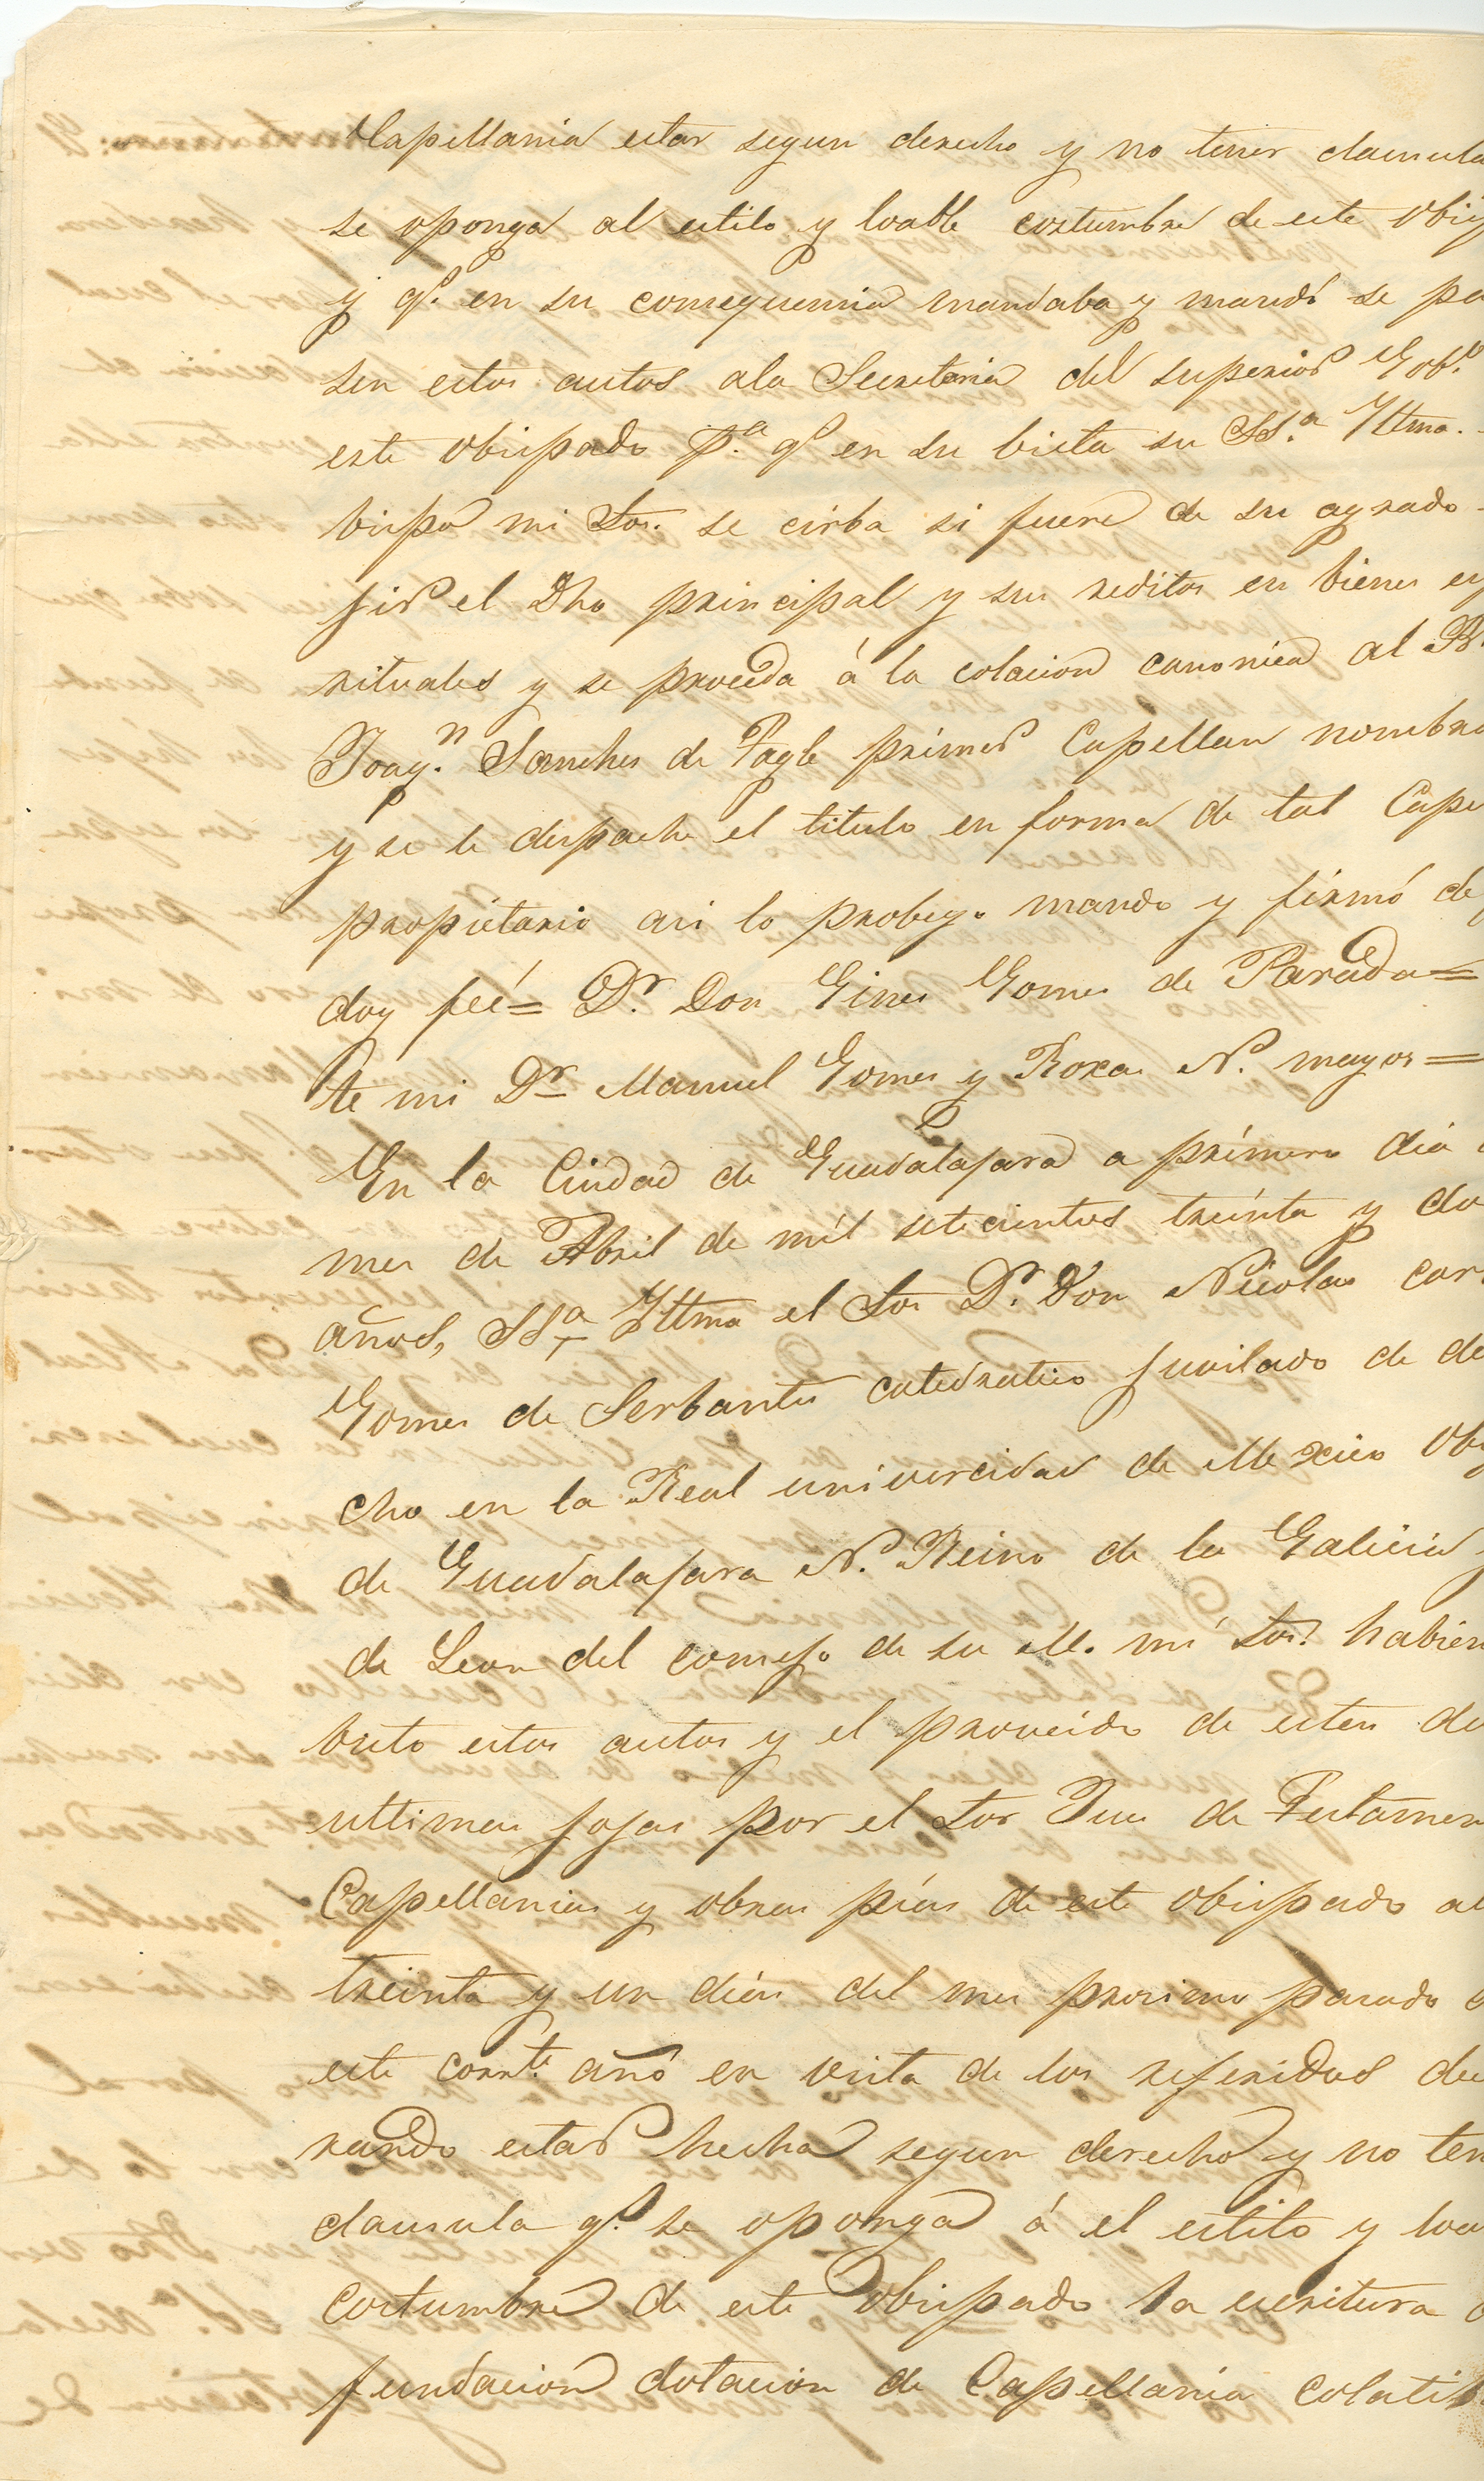 Capellania estar segun derecho y no tener clausula
se oponga al estilo y loable costumbre de este Obis
y q.e en su consequencia mandaba y mandó se pa
sen estos autos ala Secretaria del superior Gob.o
este Obispado p.a q.e en su bista su SS.a Yltma.
bispo mi Sor. se cirba si fuere de su agrado
fir el Dho principal y sus reditos en bienes es
rituales y se proceda á la colacion canonica al B.
Joaq.n Sanches de Tagle primer Capellan nombra
y se le despache el titulo en forma de tal Cape
propietario asi lo probeyo mando y firmó de
doy feé = D.r Don Gines Gomes de Parada =
te mi D.r Manuel Gomes y Roxas N. mayor =
En la Ciudad de Guadalajara a primero dia
mes de Abril de mil setecientos treinta y do
años, SS.a Yltma el Sor D.r Don Nicolas car
Gomes de Serbantes catedratico juvilado de de
cho en la Real univercidad de Mexico Ob
de Guadalajara N. Reino de la Galicia y
de Leon del consejo de su M. mi Sor. habien
bisto estos autos y el proveido de estas de
ultimas fojas por el Sor Jues de Testamen
Capellanias y obras pias de este obispado a
treinta y un dias del mes procimo pasado
este corr.te año en vista de los referidos de
rando estar hecha segun derecho y no ten
clausula q.e se oponga á el estilo y loa
costumbre de este Obispado la escritura
fundacion dotacion de Capellania colatib